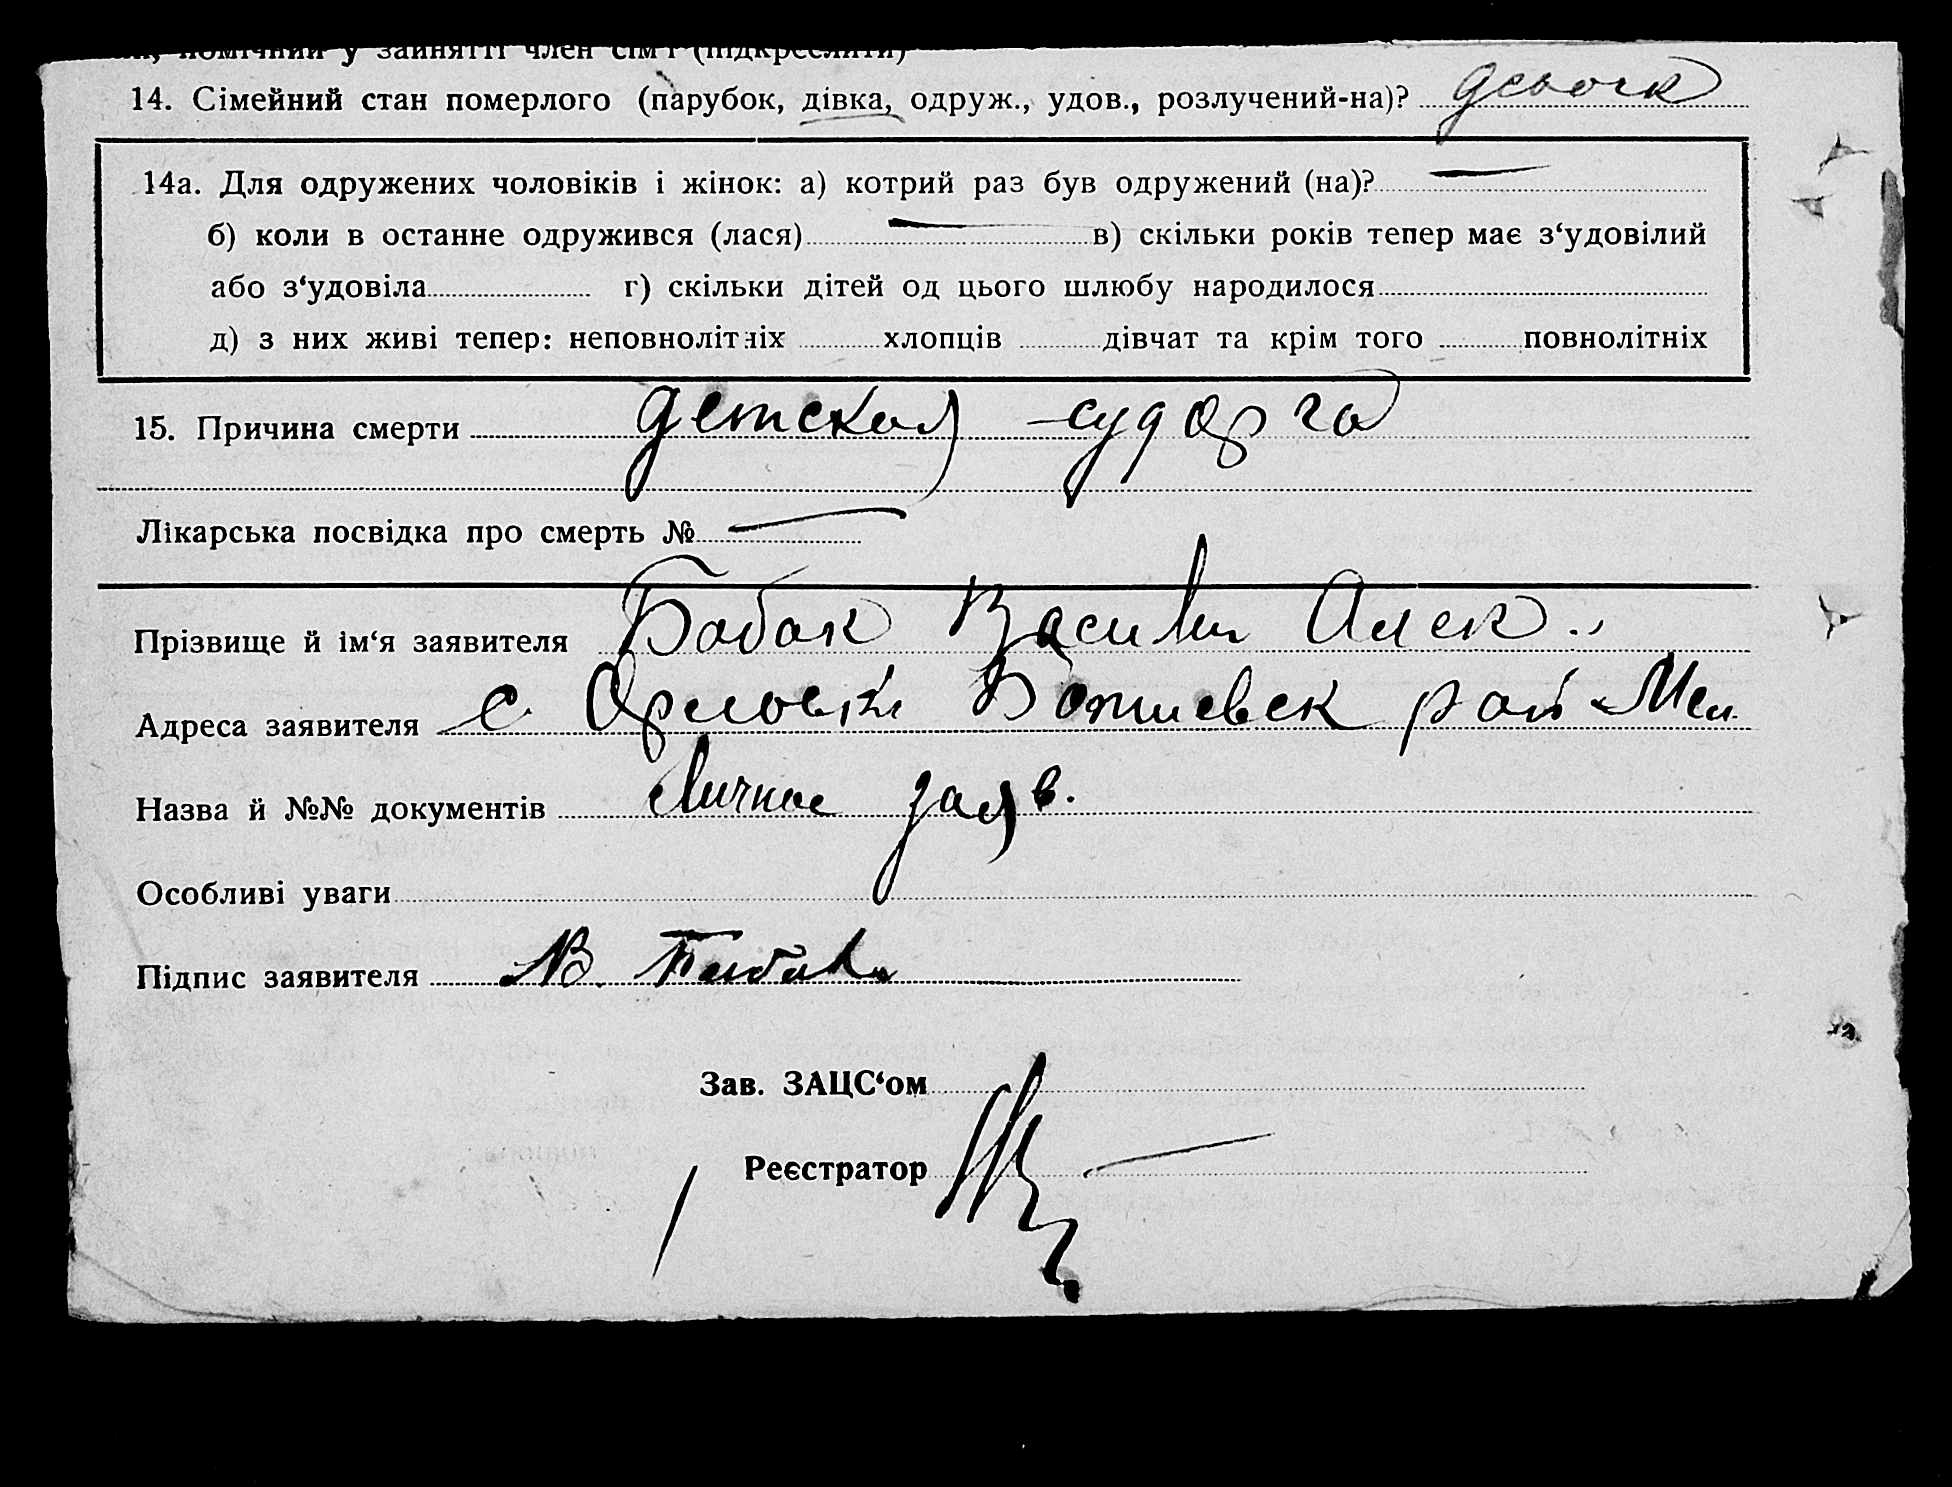 помічний у занятті член сім'ї (підкреслити)
14. Сімейний стан померлого (парубок, дівка, одруж., удов., розлучений-на)?
14а. Для одружених чоловіків і жінок: а) котрий раз був одружений (на)? —
б) коли в останне одружився (лася) — в) скільки років тепер має з‘удовілий
або з‘удовіла г) скільки дітей од цього шлюбу народилося
д) з них живі тепер: неповнолітніх хлопців дівчат та крім того повнолітніх
15. Причина смерти детская судорга
Лікарська посвідка про смерть № —
Прізвище й ім‘я заявителя Бабак Василий Алек..
Адреса заявителя с. Орловки Ботиевск рай Мел.
Назва й №№ документів Личное заяв.
Особливі уваги
Підпис заявителя В. Бабак
Зав. ЗАЦС‘ом
Реєстратор